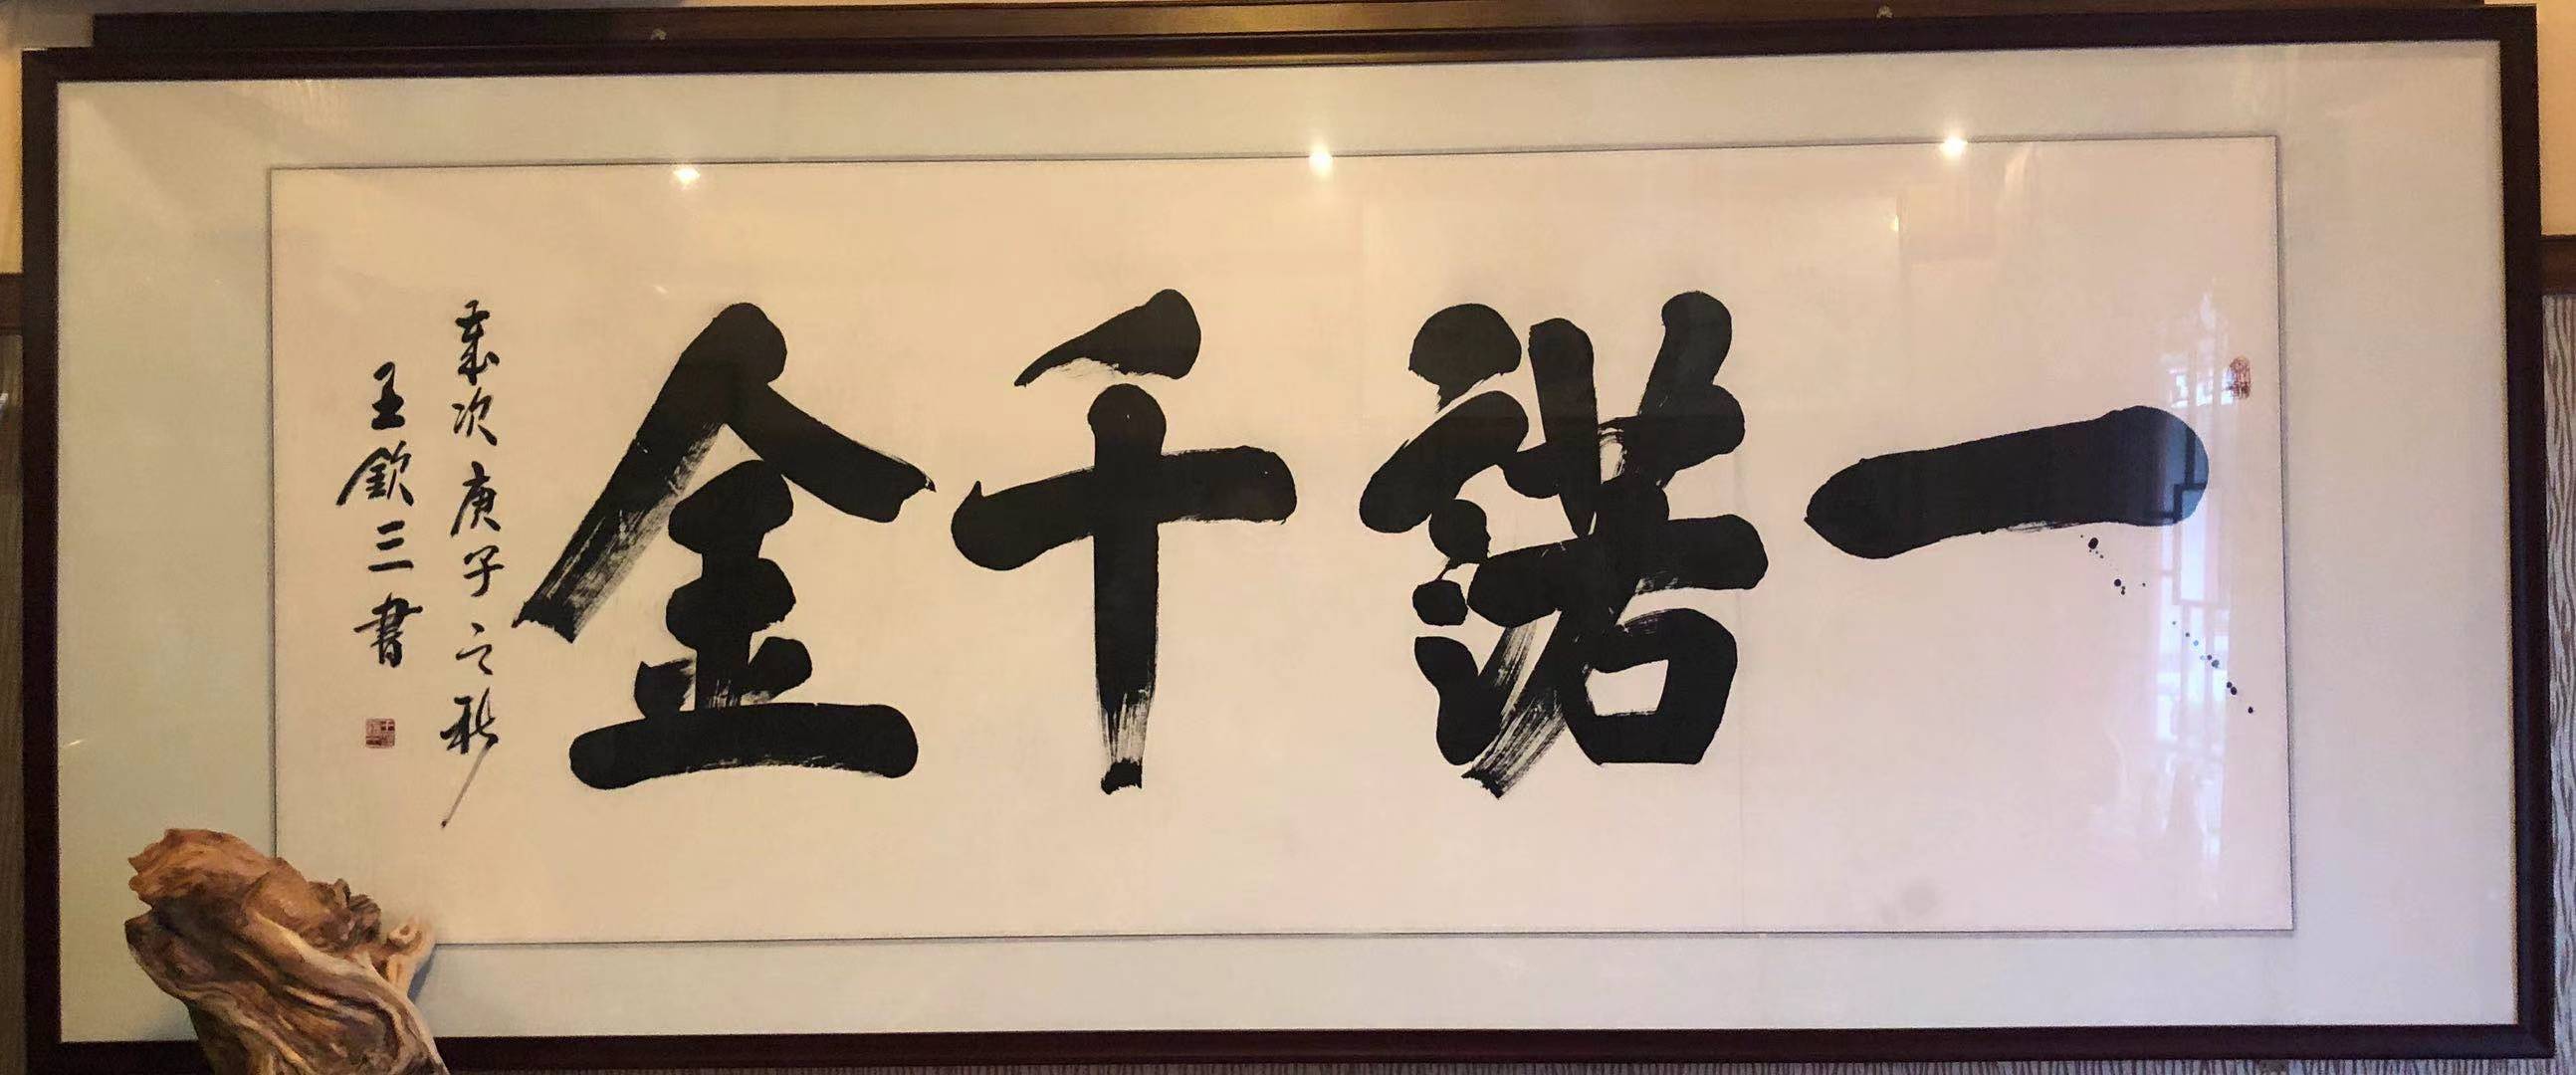 一諾千金
歲次庚子之秋
王欽三書